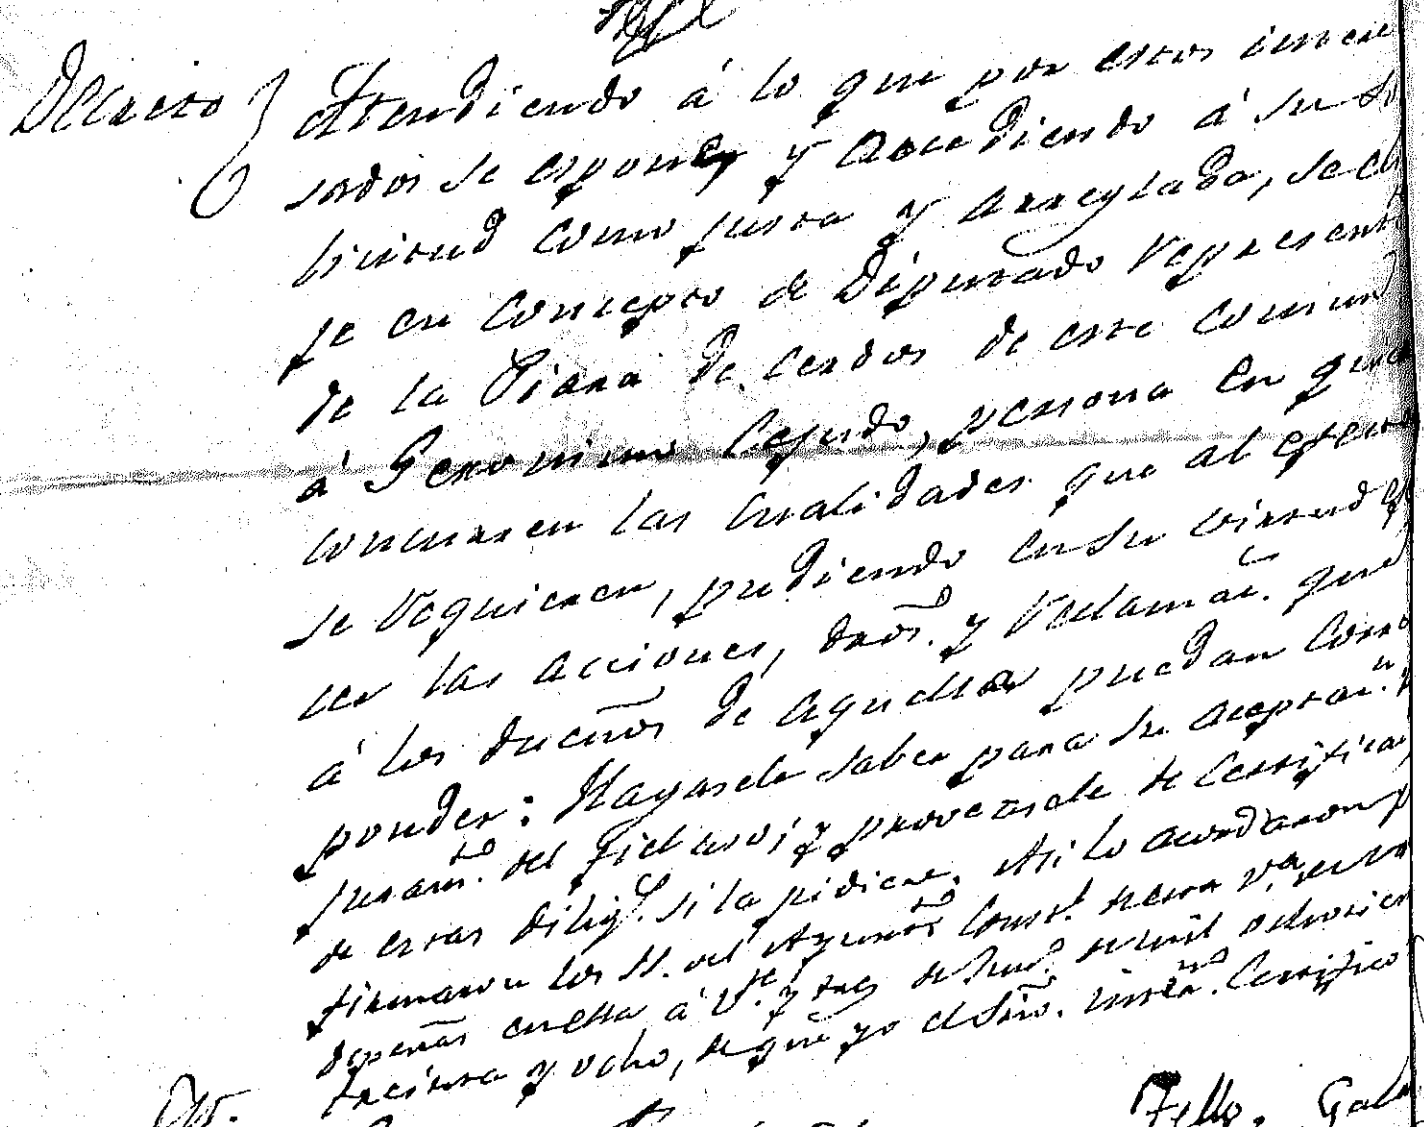 Decreto } Atendiendo á lo que por estos intere
sados se espone, y accediendo á su so
licitud como justa y arreglada, se eli
je en concepto de Diputado representte
de la Piara de cerdos de este comun
á Geronimo Cejudo, persona en quien
concurren las cualidades que al efecto
se requieren, pudiendo en su virtud ejer
cer las acciones, dros. y reclamac. que
á los dueños de aquellos puedan corres
ponder: Hagasele saber para su aceptaon. y
juramto. del fiel uso; y proveasele de certifica
de estas dilig.s si la pidiere. Asi lo acordaron y
firmaron los SS. del Ayuntto. Const.l de esta v.a de
despeñas en ella á v.te y tres de de mil ochocien
treinta y ocho, de que yo el Srio. intno. Certifico
Tello. Gal